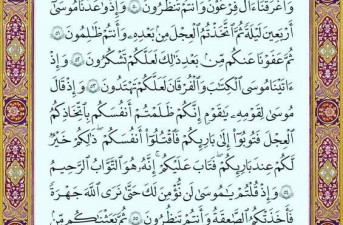 وَأَغْرَقْنَآ ءَالَ فِرْعَوْنَ وَأَنتُمْ تَنظُرُونَ ۝ وَإِذْ وَٰعَدْنَا مُوسَىٰٓ
أَرْبَعِينَ لَيْلَةً ثُمَّ ٱتَّخَذْتُمُ ٱلْعِجْلَ مِنۢ بَعْدِهِۦ وَأَنتُمْ ظَٰلِمُونَ ۝
ثُمَّ عَفَوْنَا عَنكُم مِّنۢ بَعْدِ ذَٰلِكَ لَعَلَّكُمْ تَشْكُرُونَ ۝ وَإِذْ
ءَاتَيْنَا مُوسَى ٱلْكِتَٰبَ وَٱلْفُرْقَانَ لَعَلَّكُمْ تَهْتَدُونَ ۝ وَإِذْ قَالَ
مُوسَىٰ لِقَوْمِهِۦ يَٰقَوْمِ إِنَّكُمْ ظَلَمْتُمْ أَنفُسَكُم بِٱتِّخَاذِكُمُ
ٱلْعِجْلَ فَتُوبُوٓا۟ إِلَىٰ بَارِئِكُمْ فَٱقْتُلُوٓا۟ أَنفُسَكُمْ ذَٰلِكُمْ خَيْرٌ
لَّكُمْ عِندَ بَارِئِكُمْ فَتَابَ عَلَيْكُمْ إِنَّهُۥ هُوَ ٱلتَّوَّابُ ٱلرَّحِيمُ
۝ وَإِذْ قُلْتُمْ يَٰمُوسَىٰ لَن نُّؤْمِنَ لَكَ حَتَّىٰ نَرَى ٱللَّهَ جَهْرَةً
فَأَخَذَتْكُمُ ٱلصَّٰعِقَةُ وَأَنتُمْ تَنظُرُونَ ۝ ثُمَّ بَعَثْنَٰكُم مِّنۢ